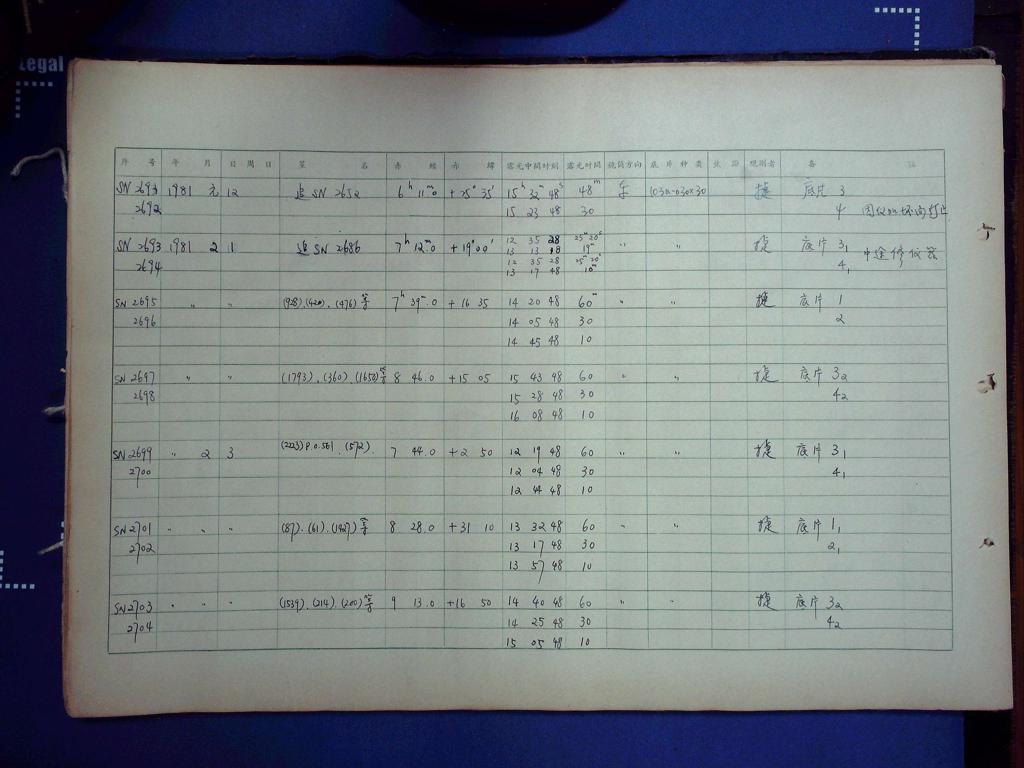 Legal
序 号 年 月 日 周 日 星 名 赤 经 赤 纬 露光中间时刻 露光时间 镜筒方向 底 片 种 类 观测者 备
SN 2693 1981 元 12 追 SN 2652 6h 11m0 +25° 35' 15h 32m 48s 48m 东 103a-O30×30 捷 底片 3
2692 15 23 48 30 4
SN 2693 1981 2 1 追 SN 2686 7h 12m0 +19°00' 12 35 28 25m 20s " " 捷 底片 31
2694 13 13 18 19m 41 中途修仪器
12 35 28 25m 20s
13 17 48 10m
SN 2695 " " (928),(420),(476)等 7h 39m.0 +16 35 14 20 48 60m " " 捷 底片 1
2696 14 05 48 30 2
14 45 48 10
SN 2697 " " (1793),(360),(1650)等 8 46.0 +15 05 15 43 48 60 " " 捷 底片 32
2698 15 28 48 30 42
16 08 48 10
SN 2699 " 2 3 (2223)P.O.561,(572). 7 44.0 +2 50 12 19 48 60 " " 捷 底片 31
2700 12 04 48 30 41
12 44 48 10
SN 2701 " " " (87).(61).(1427)等 8 28.0 +31 10 13 32 48 60 " " 捷 底片 11
2702 13 17 48 30 21
13 57 48 10
SN 2703 " " " (1539).(214).(200)等 9 13.0 +16 50 14 40 48 60 " " 捷 底片 32
2704 14 25 48 30 42
15 05 48 10